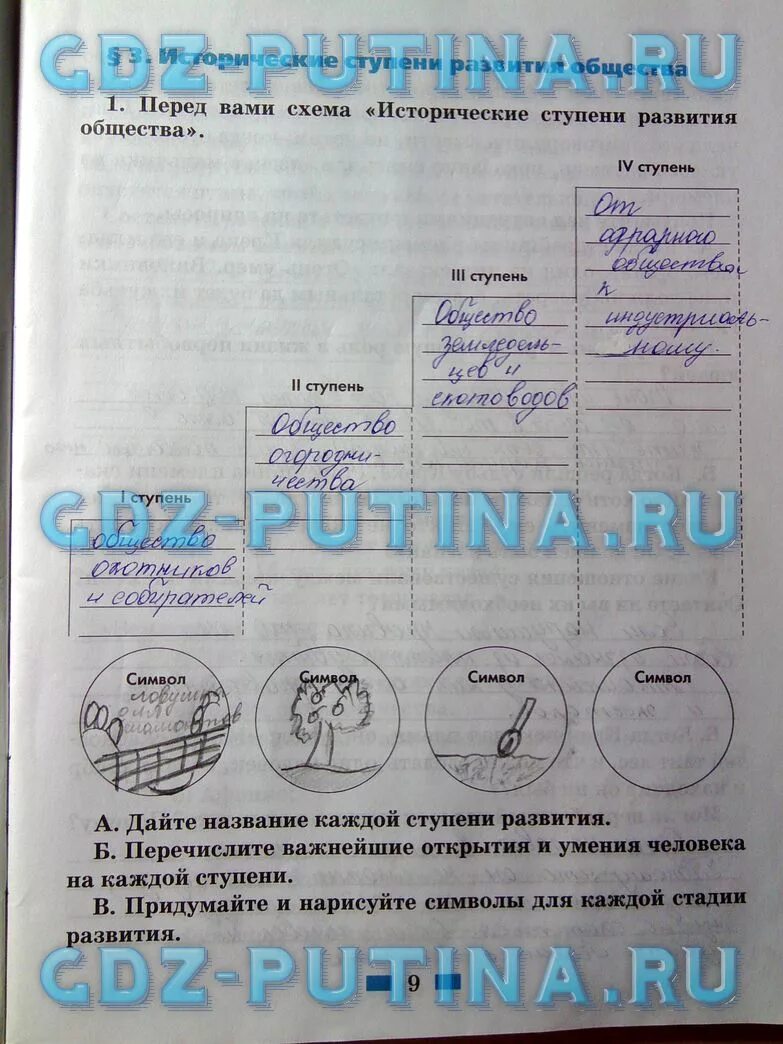 GDZ-PUTINA.RU
§ 3. Исторические ступени развития общества
1. Перед вами схема «Исторические ступени развития
общества».
IV ступень
От
аграрного
общества
к
индустриаль-
ному.
III ступень
Общество
земледель-
цев и
скотоводов
II ступень
Общество
огородни-
чества
I ступень
GDZ-PUTINA.RU
общество
охотников
и собирателей
Символ
ловушка
для
мамонтов
Символ
Символ
Символ
А. Дайте название каждой ступени развития.
Б. Перечислите важнейшие открытия и умения человека
на каждой ступени.
В. Придумайте и нарисуйте символы для каждой стадии
развития.
GDZ-PUTINA.RU
9